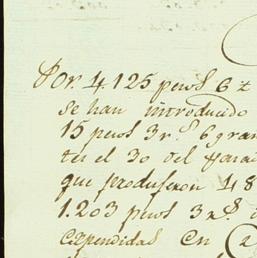 Por 4.125 pesos 6 t
se han introducido
15 pesos 3 r.s 6 gran
tes el 30 del
que produjeron 48
1.203 pesos 3 r.s
expendidas en